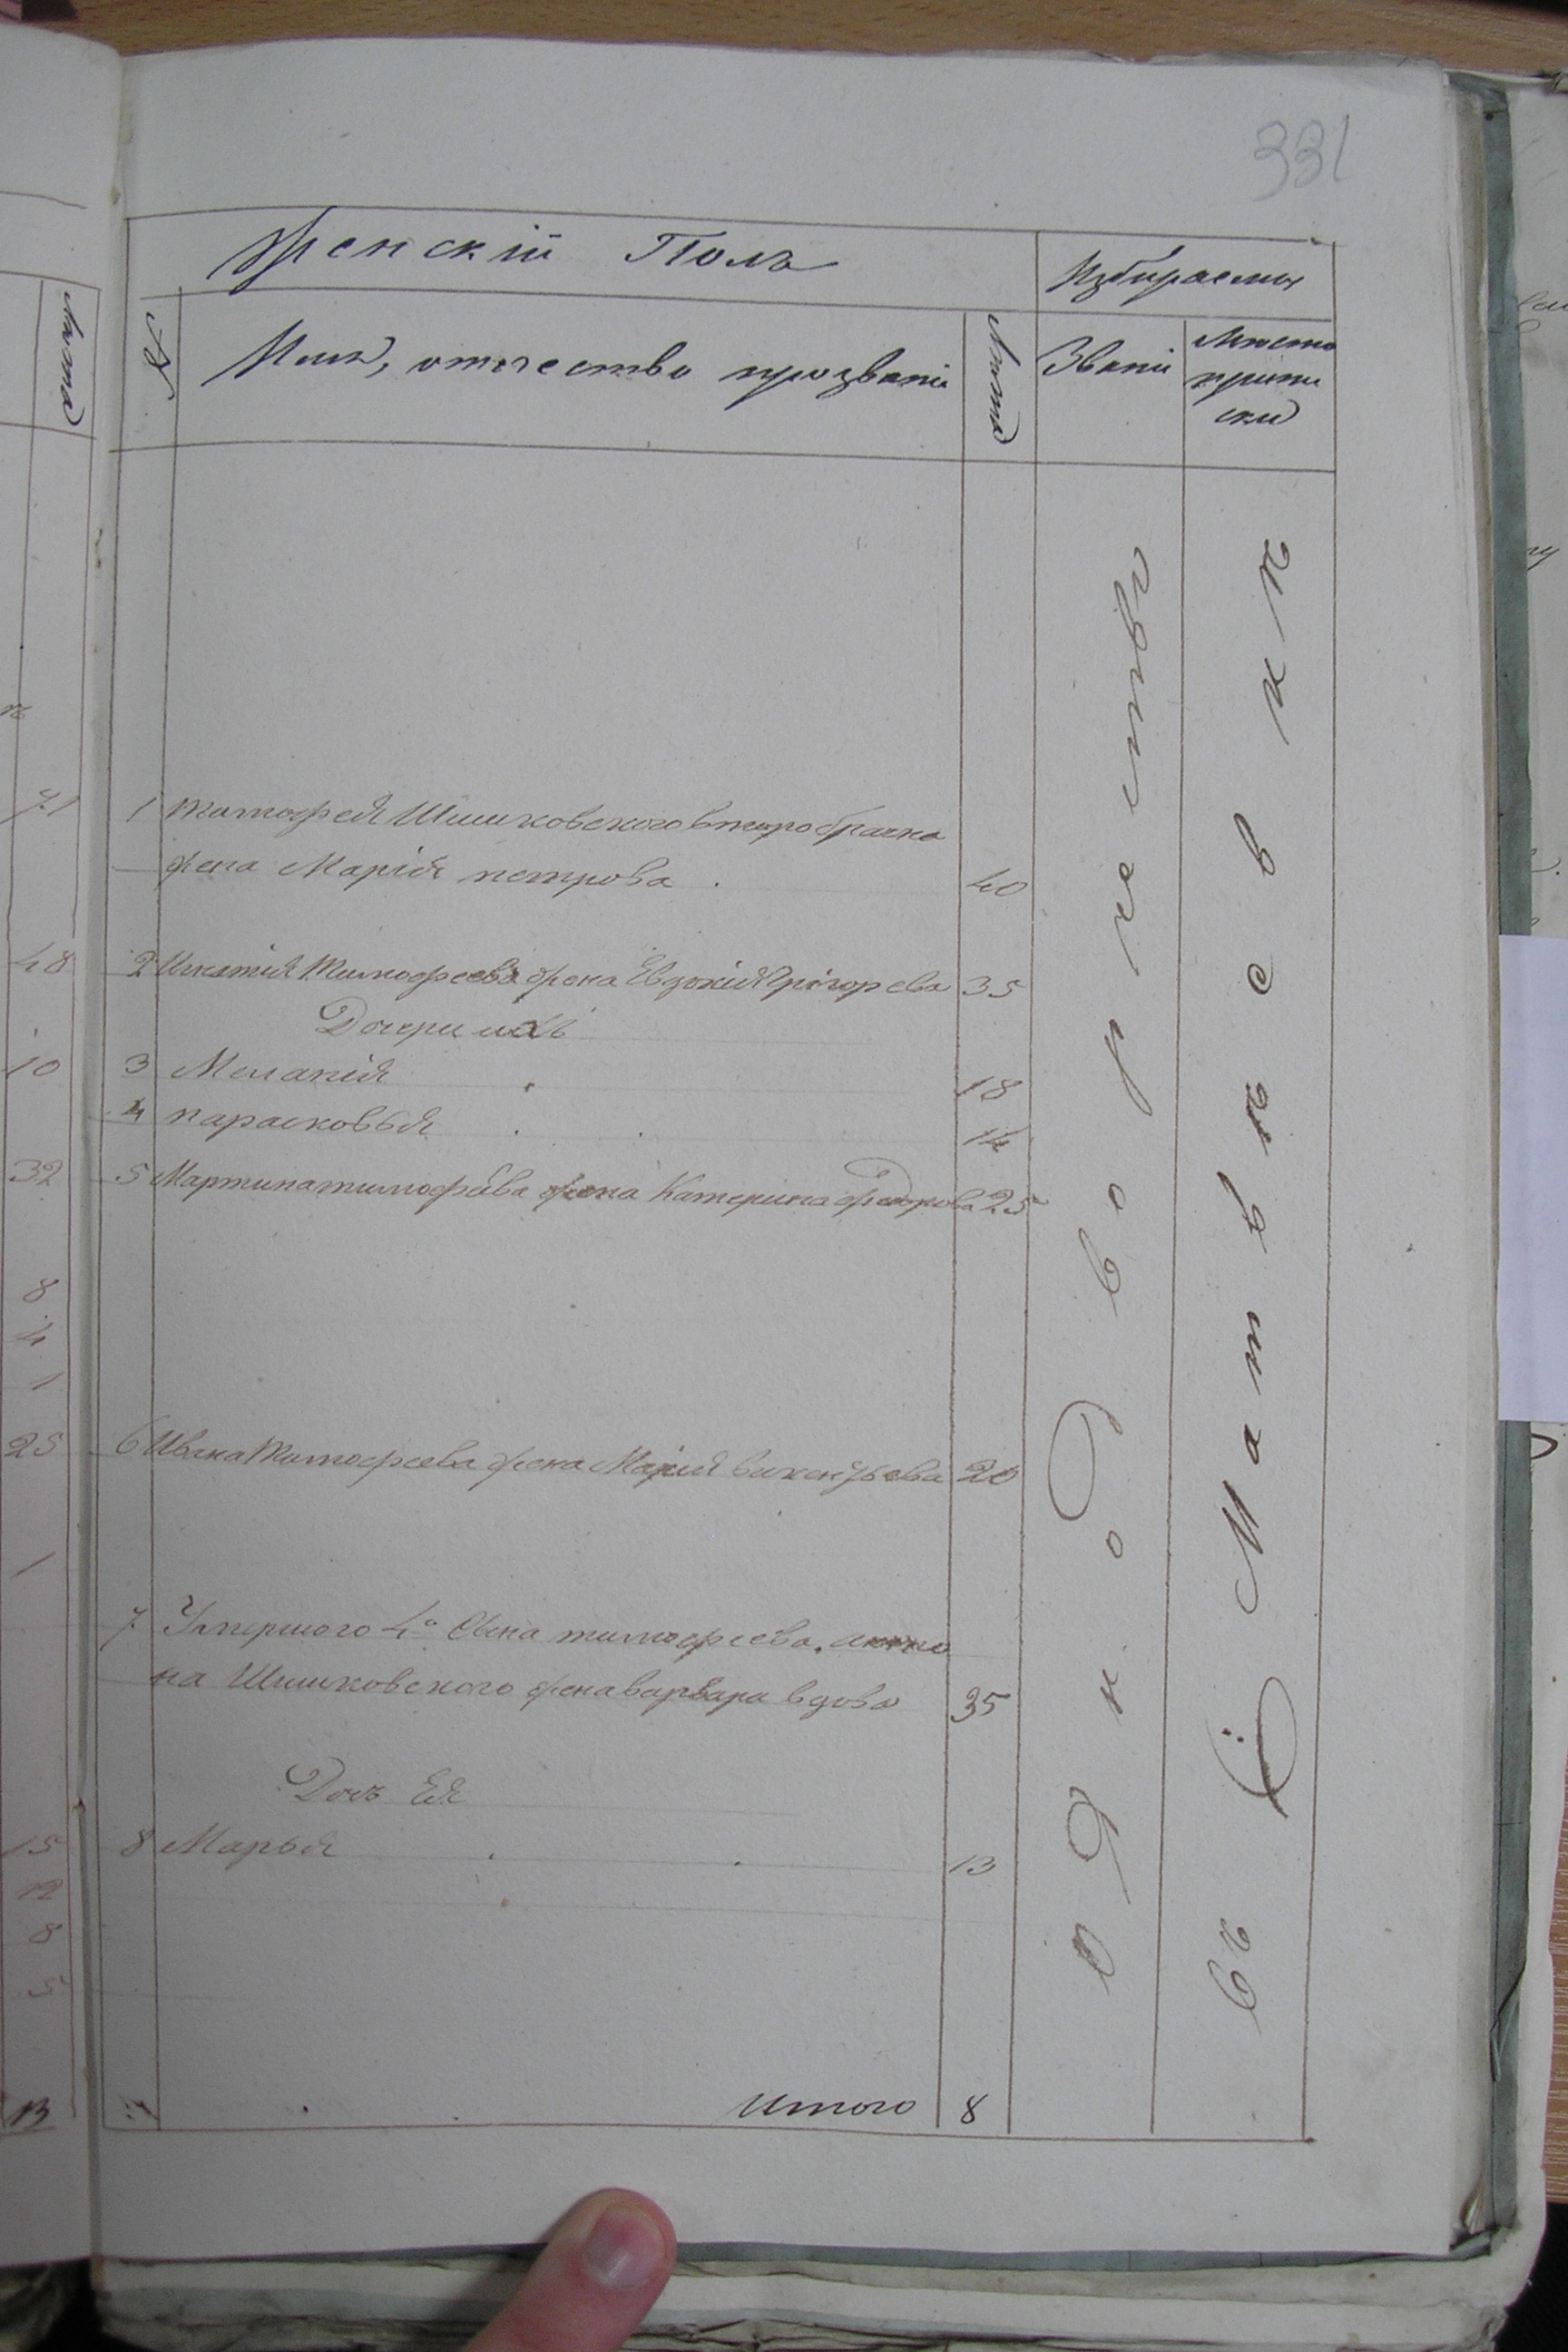 331
Женскій Полъ
Избираемыя
№
Имя, отечество прозваніе
Лѣта
Званіе
Мѣсто
припи
ски
Лѣта
1 Тимофея Шишковского второбрачна
жена Марія петрова . 40
2 Игнатія Тимофеева жена Евдокія Григорева 35
Дочери ихъ
3 Меланія 18
4 парасковья 14
5 Мартина тимофеева жена Катерина федорова 25
6 Ивана Тимофеева жена Марія викентьева 20
7 Умершого 4го Сына тимофеева, анто
на Шишковского жена варвара вдова 35
Дочь Ея
8 Марья 13
Итого 8
однодворчество
въ Матвѣевкѣ
71
48
10
32
8
4
1
25
1
15
12
8
5
13